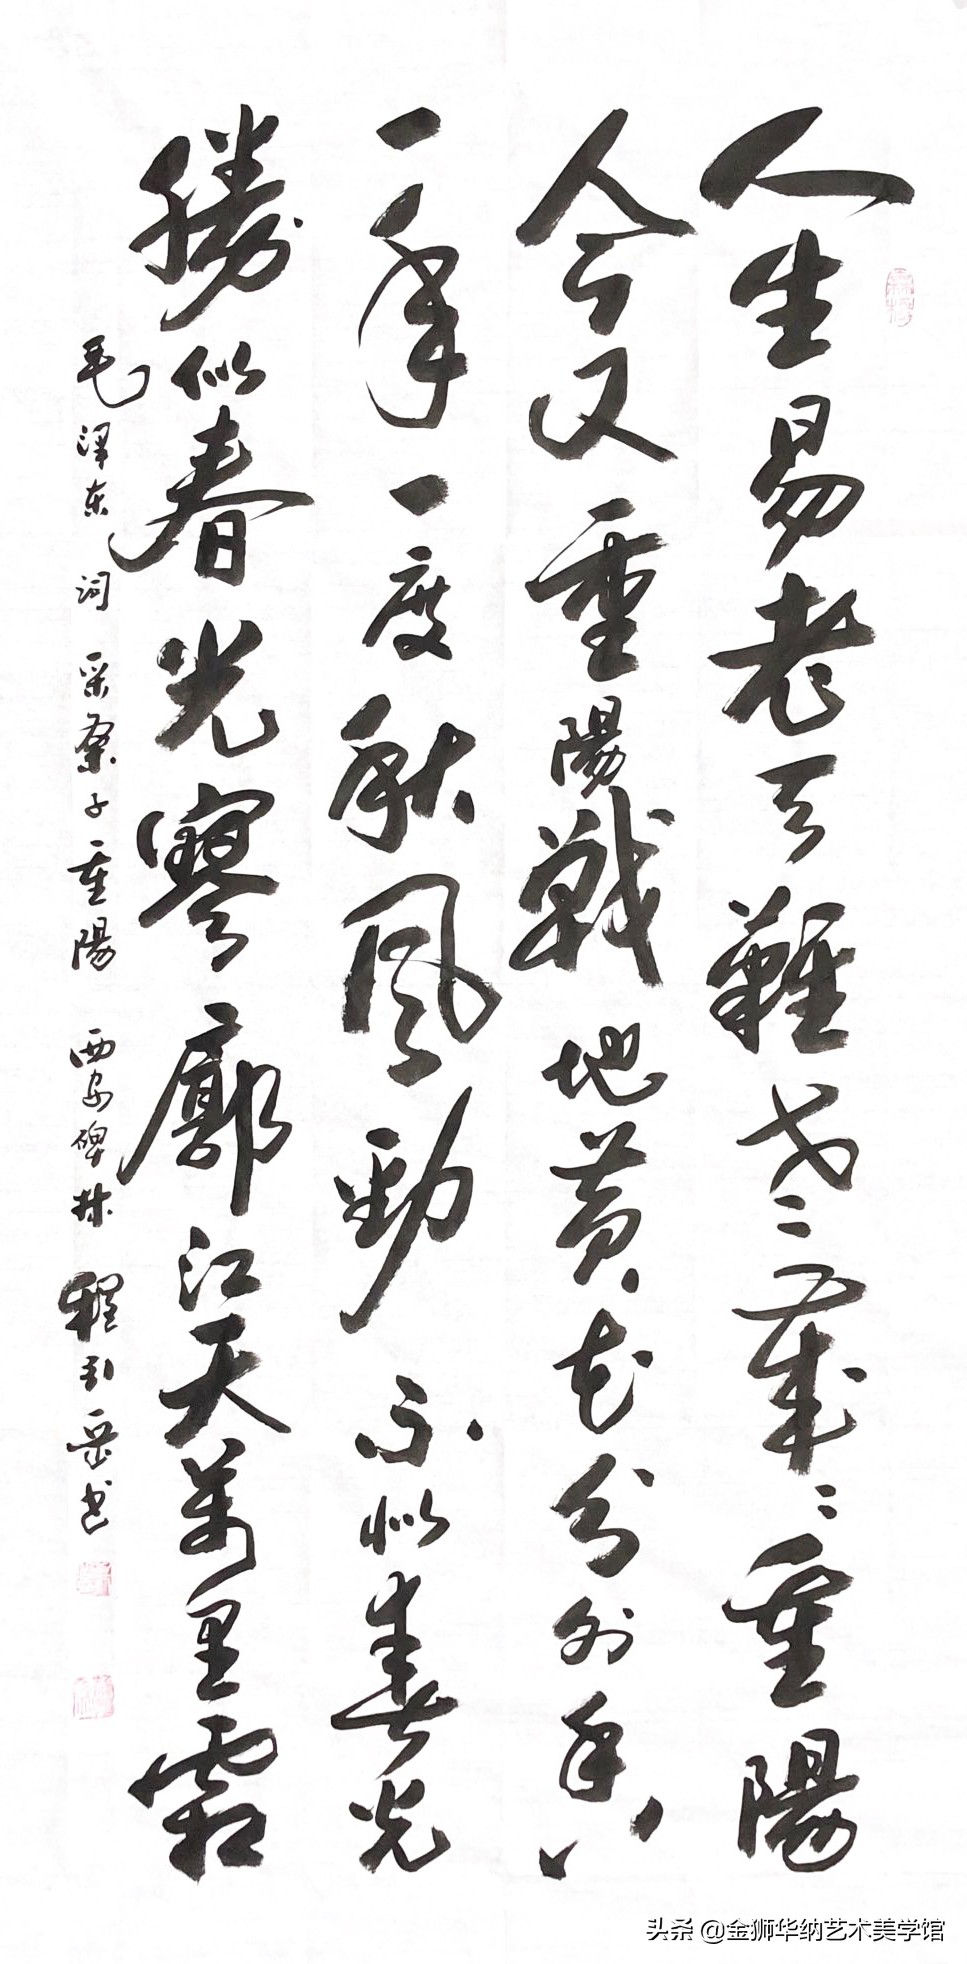 人生易老天難老〻歲〻重陽
今又重陽戰地黃花分外香
一年一度秋風勁不似春光
勝似春光寥廓江天萬里霜
毛泽东词采桑子重陽 西安碑林 程引岳书
头条 @金狮华纳艺术美学馆